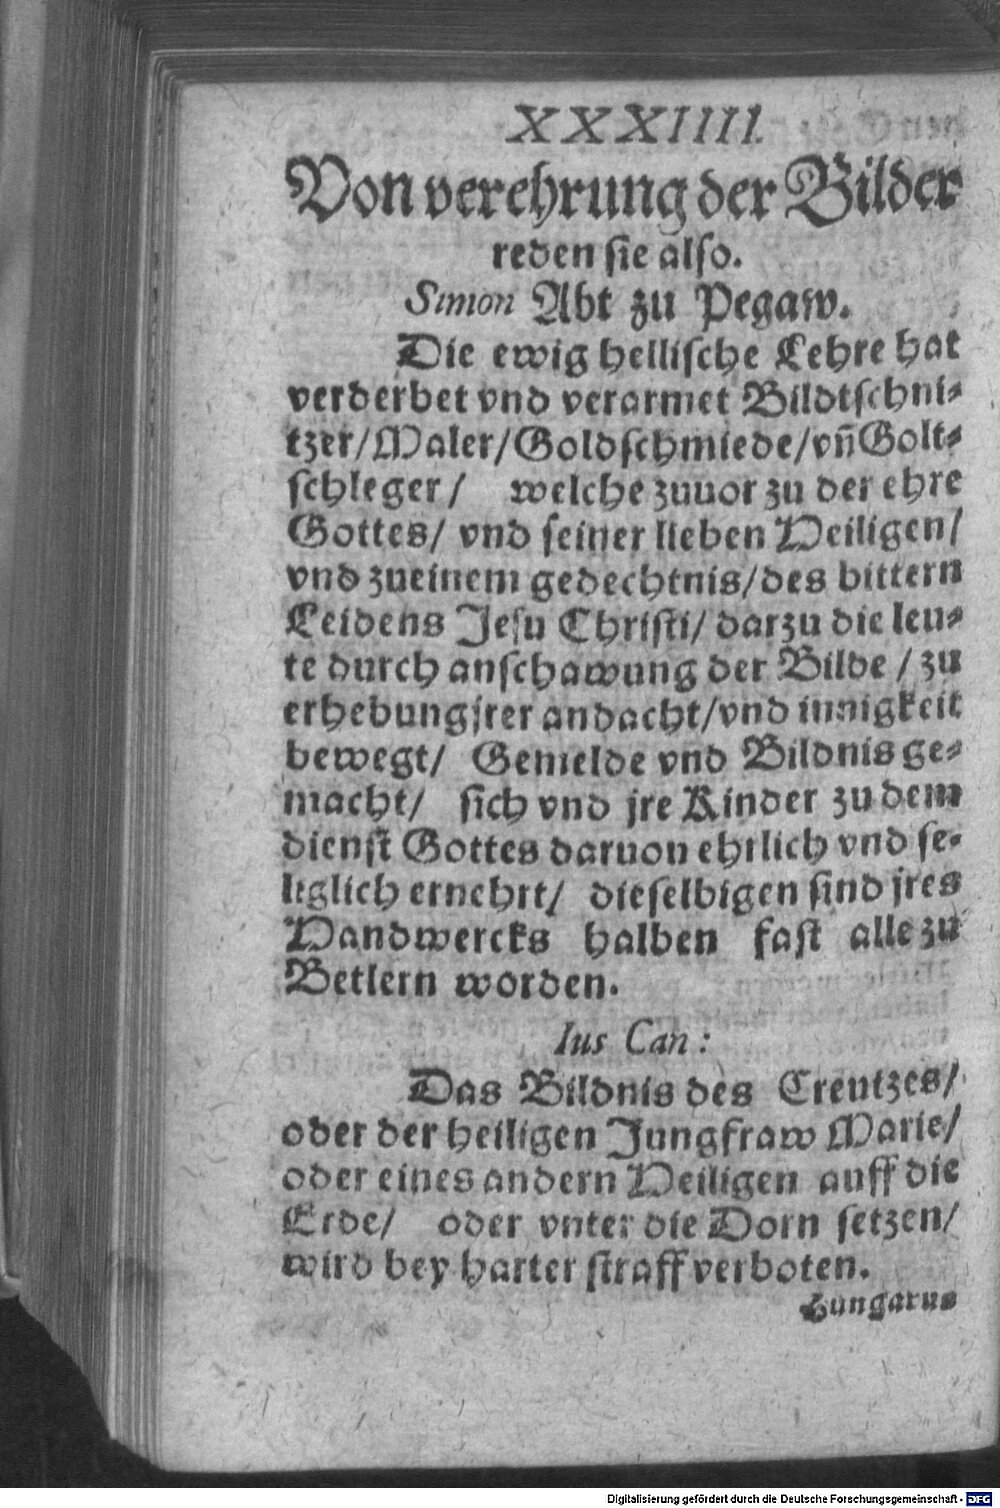 XXXIIII.
Von verehrung der Bilder
reden sie also.
Simon Abt zu Pegaw.
Die ewig hellische Lehre hat
verderbet vnd verarmet Bildtschni⸗
tzer/Maler/Goldschmiede/vñ Golt⸗
schleger/ welche zuuor zu der ehre
Gottes/ vnd seiner lieben Heiligen/
vnd zu einem gedechtnis/des bittern
Leidens Jesu Christi/ darzu die leu⸗
te durch anschawung der Bilde / zu
erhebung jrer andacht/vnd innigkeit
bewegt/ Gemelde vnd Bildnis ge⸗
macht/ sich vnd jre Kinder zu dem
dienst Gottes daruon ehrlich vnd se⸗
liglich ernehrt/ dieselbigen sind jres
Handwercks halben fast alle zu
Betlern worden.
Ius Can:
Das Bildnis des Creutzes/
oder der heiligen Jungfraw Marie/
oder eines andern Heiligen auff die
Erde/ oder vnter die Dorn setzen/
wird bey harter straff verboten.
Hungarus
Digitalisierung gefördert durch die Deutsche Forschungsgemeinschaft - DFG